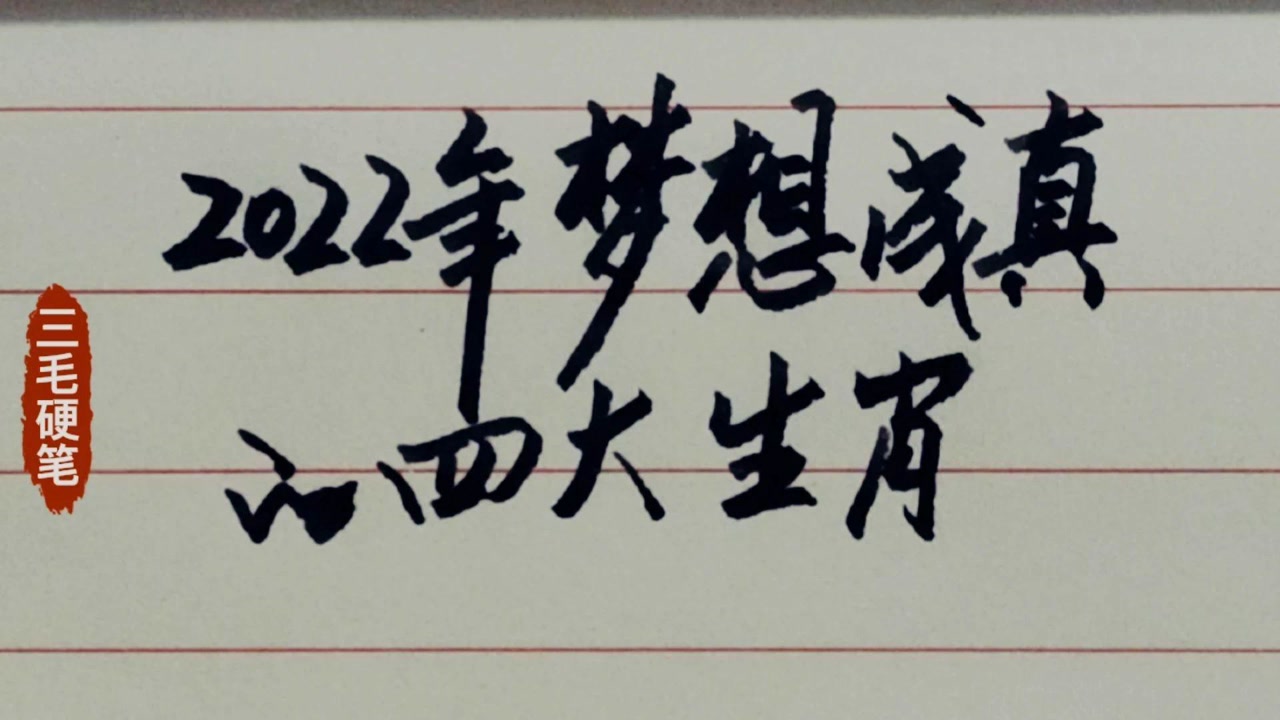 2022年梦想成真
的四大生肖
三毛硬笔